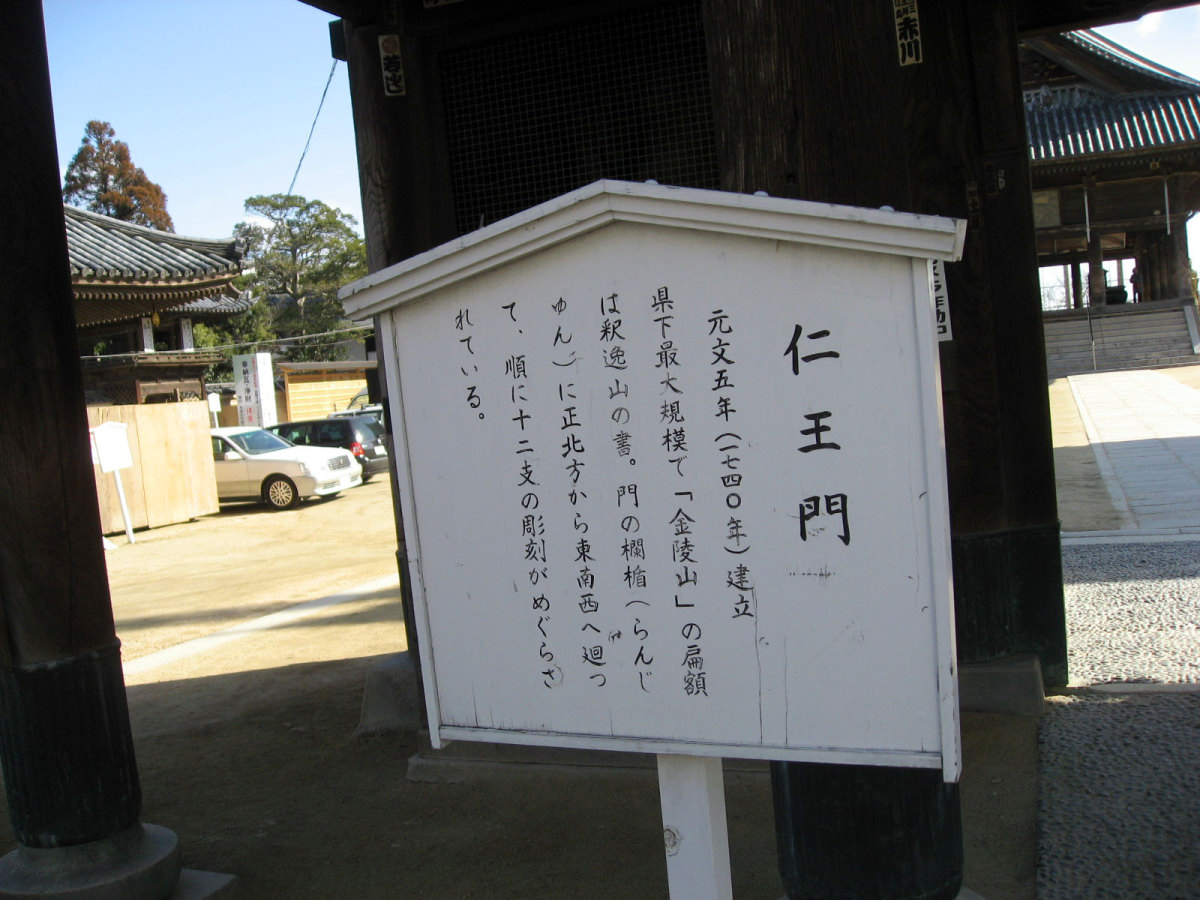 仁王門
元文五年(一七四〇年)建立
県下最大規模で「金陵山」の扁額
は釈逸山の書。門の欄楯(らんじ
ゆん)に正北方から東南西へ廻つ
て、順に十二支の彫刻がめぐらさ
れている。
赤川